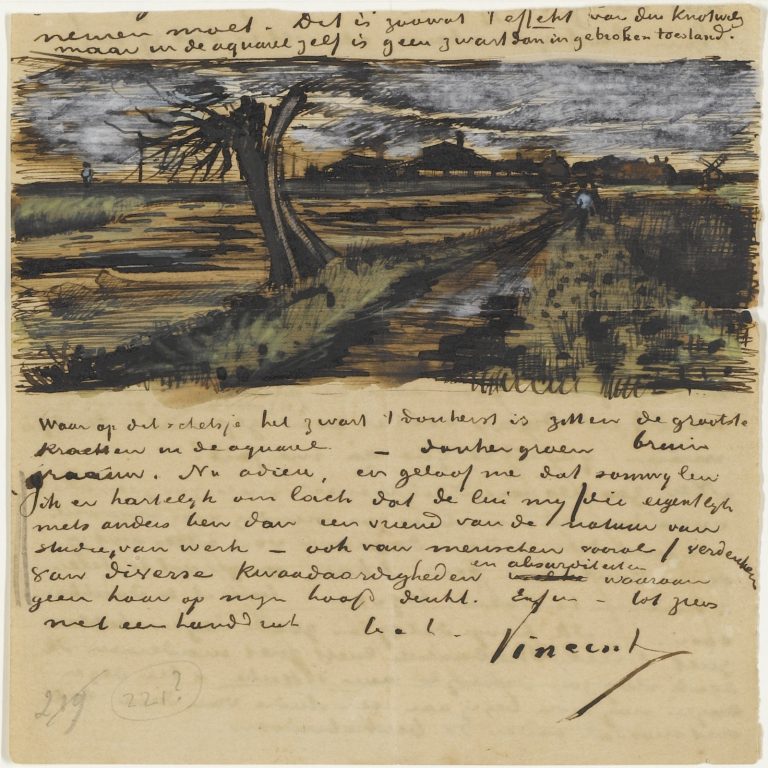 nemen moet. Dit is zoowat 't effekt van den Knotwilg
maar in de aquarel zelf is geen zwart dan in gebroken toestand.
Waar op dit schetsje het zwart 't donkerst is zitten de grootste
krachten in de aquarel – donkergroen bruin
graauw. Nu adieu, en geloof me dat somwylen
ik er hartelyk om lach dat de lui my /die eigentlyk
niets anders ben dan een vriend van de natuur van
studie, van werk – ook van menschen vooral/ verdenken
van diverse kwaadaardigheden en absurditeiten waaraan
geen haar op myn hoofd denkt. Enfin – tot ziens
met een handdruk
Vincent
219 221?